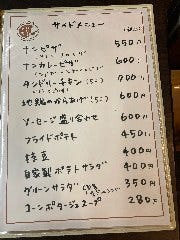 サイドメニュー
(税込)
ナンピザ 550円
ナンカレーピザ 600円
タンドリーチキン(5コ) 700円
地鶏のからあげ(5コ) 600円
ソーセージ盛り合わせ 600円
フライドポテト 450円
枝豆 400円
自家製ポテトサラダ 400円
グリーンサラダ 350円
コーンポタージュスープ 280円